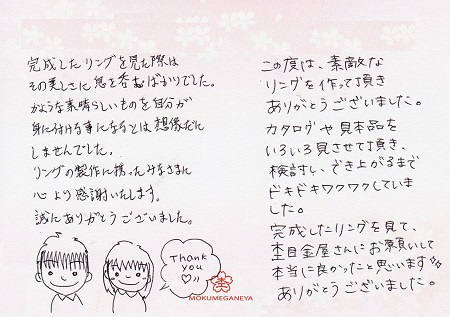 完成したリングを見た際は
その美しさに息を呑むばかりでした。
かような素晴らしいものを自分が
身に付ける事になるとは想像だに
しませんでした。
リングの製作に携ったみなさまに
心より感謝いたします。
誠にありがとうございました。
Thank
you
MOKUMEGANEYA
この度は、素敵な
リングを作って頂き
ありがとうございました。
カタログや見本品を
いろいろ見させて頂き、
検討し、でき上がるまで
ドキドキワクワクしていま
した。
完成したリングを見て、
杢目金屋さんにお願いして
本当に良かったと思います
ありがとうございました。